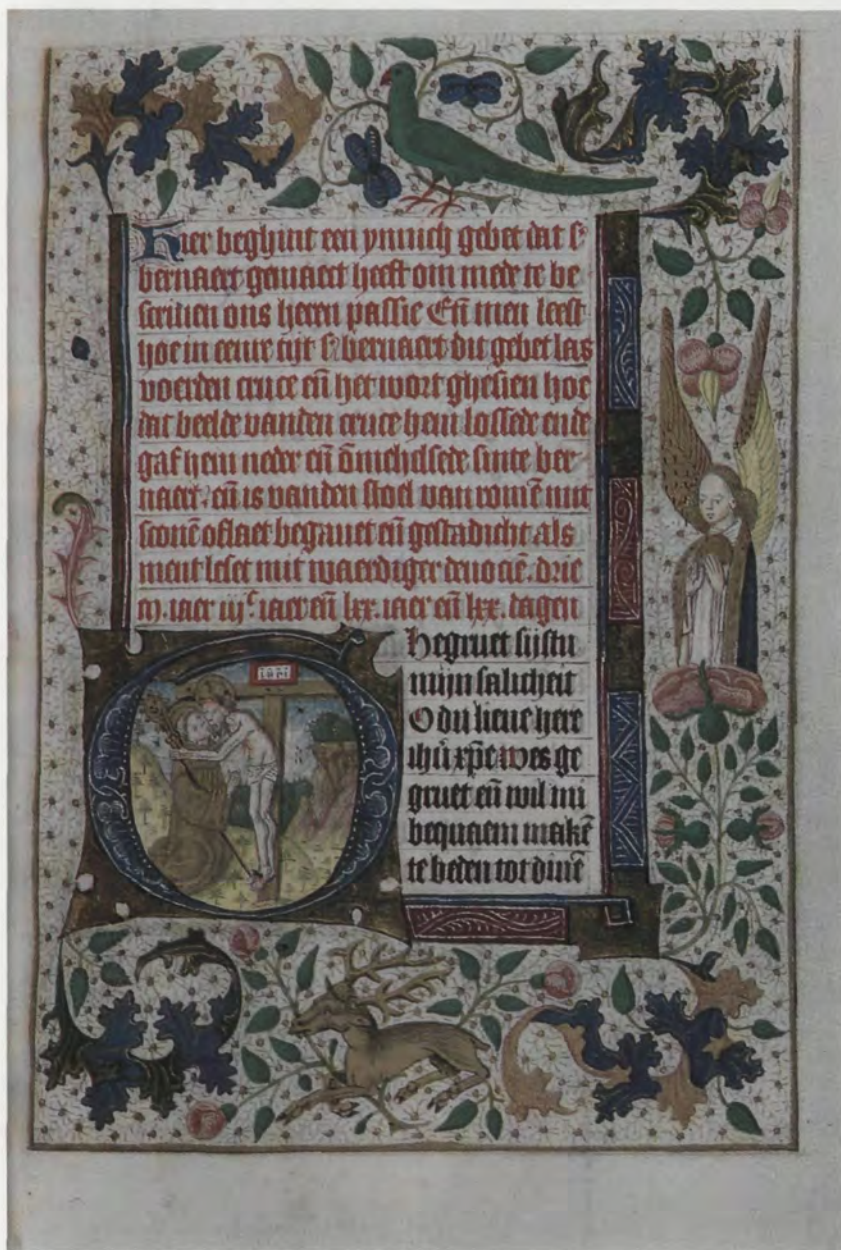 Hier beghint een ynnich gebet dat s͛
bernaert gemaect heeft om mede te be
scriben ons heren passie En̄ men leest
hoe in eenre tijt s͛ bernaert dit gebet las
voerden cruce en̄ het wort ghesien hoe
dat beelde vanden cruce hem lossede ende
gaf hem neder en̄ ōmehelsede sinte ber-
naert. en̄ is vanden stoel van romē mit
sconē oflaet begauet en̄ gestadicht als
ment leset mit waerdiger deuociē. drie
m. iaer iijᶜ iaer en̄ lxx. iaer en̄ lxx. dagen
INRI
hegruet sijstu
mijn salicheit
O du lieue here
ihū xp̄e wes ge
gruet en̄ wil mi
bequaem makē
te beden tot dinē